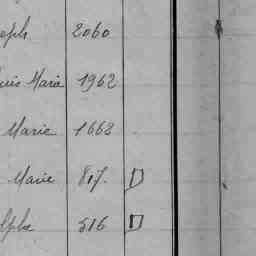 eph 2060
uis Marie 1962
Marie 1668
Marie 817. D
lphe 516 D